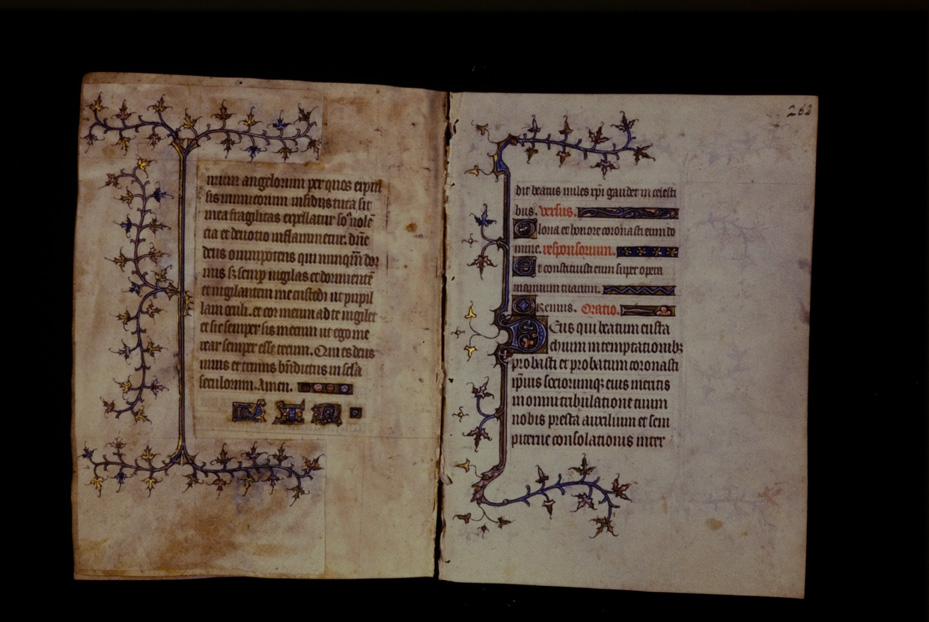 nium angelorum per quos expul
sis inimicorum insidiis tuta sit
mea fragilitas expellatur sōnolē
cia et deuotio inflammetur. dn̄e
deus omnipotens qui nunq̄m dor
mis sꝫ semp uigilas et dormientē
et uigilantem me custodi ut pupil
lam oculi. et cor meum ad te uigilet
et sic semper sis mecum ut ego me
rear semper esse tecum. Qui es deus
unus et trinus bn̄dictus in sc̄la
seculorum. Amen.
262
dit beatus miles xp̄i gaudet in celesti
bus. versus.
Gloria et honore coronasti eum do
mine. responsorium.
Et constituisti eum super opera
manuum tuarum.
Oremus. Oratio.
Deus qui beatum eusta
chium in temptationibꝫ
probasti et probatum coronasti
ip̄ius sociorumqꝫ eius meritis
in omni tribulatione tuum
nobis presta auxilium et sem
piterne consolationis inter